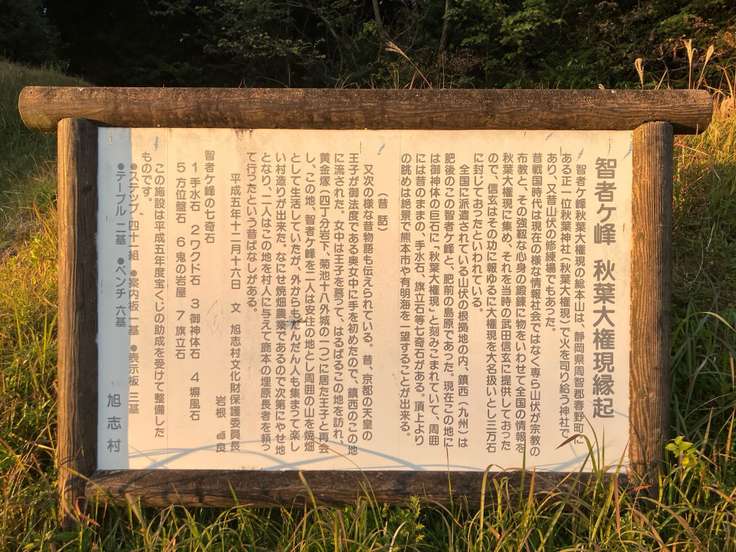 智者ケ峰 秋葉大権現縁起
智者ケ峰秋葉大権現の総本山は、静岡県周智郡春野町に
ある正一位秋葉神社（秋葉大権現）で火を司り給う神社で
あり、又昔山伏の修練場でもあった。
昔戦国時代は現在の様な情報社会ではなく専ら山伏が宗教の
布教と、その強靱な心身の鍛錬に物をいわせて全国の情報を
秋葉大権現に集め、それを当時の武田信玄に提供しておった
ので、信玄はその功に報ゆるに大権現を大名扱いとし三万石
に封しておったといわれている。
全国に派遣されている山伏の根拠地の内、鎮西（九州）は
肥後のこの智者ケ峰と、肥前の島原であった。現在この地に
は御神体の巨石に「秋葉大権現」と刻みこまれていて、周囲
には昔のままの、手水石、旗立石等七奇石がある。頂上より
の眺めは絶景で熊本市や有明海を一望することが出来る。
（昔話）
又次の様な昔物語も伝えられている。昔、京都の天皇の
王子が御法度である奥女中に手を初めたので、鎮西のこの地
に流された。女中は王子を慕って、はるばるこの地を訪れ、
黄金塚（四丁分岩下、菊池十八外城の一つ）に居た王子と再会
し、この地、智者ケ峰を二人は安住の地とし周囲の山を焼畑
として生活していたが、外からもだんだん人も集まって楽し
い村造りが出来た。なにせ焼畑農業であるので次第にやせ地
となり、二人はこの地を村人に与えて鹿本の埋原長者を頼っ
て行ったという昔ばなしがある。
平成五年十二月十六日 文 旭志村文化財保護委員長
岩根 良
智者ケ峰の七奇石
1 手水石 2 ワクド石 3 御神体石 4 塀風石
5 方位盤石 6 鬼の岩屋 7 旗立石
この施設は平成五年度宝くじの助成を受けて整備した
ものです。
●ステップ 四十一組 ●案内板 三基 ●表示板 三基
●テーブル 二基 ●ベンチ 六基
旭志村